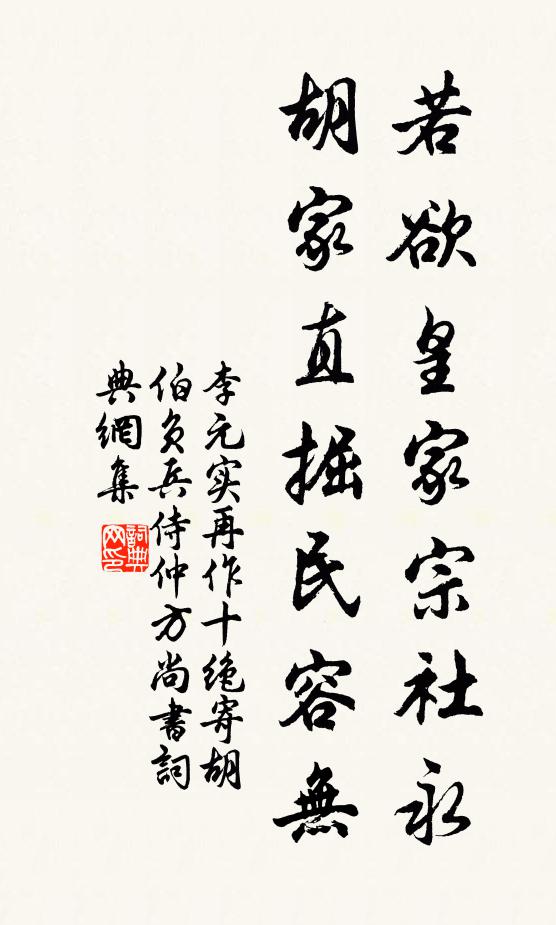 若欲皇家宗社永
胡家直掘民容無
李元实再作十绝寄胡
伯负兵侍仲方尚書詞
典網集
詞典
网印